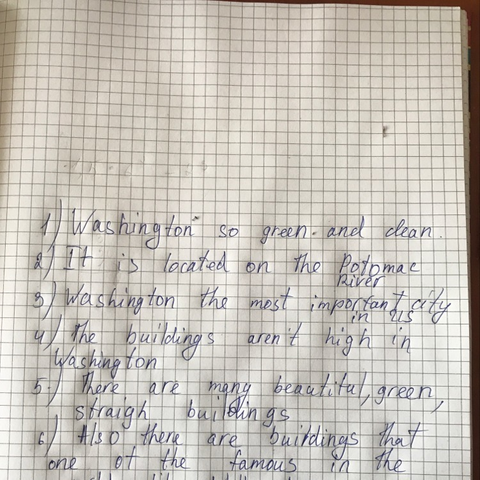 1) Washington so green and clean.
2) It is located on the Potomac
River
3) Washington the most important city
in us
4) The buildings aren't high in
Washington
5.) There are many beautiful, green,
straigh buildings
6) Also there are buildings that
one of the famous in the